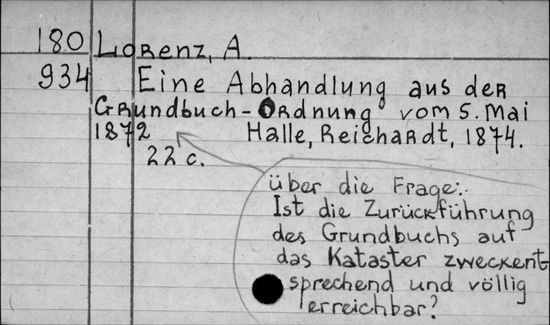 180 Lorenz, A.
934 Eine Abhandlung aus der
Grundbuch-Ordnung vom 5. Mai
1872 Halle, Reichardt, 1874.
22 c.
über die Frage:
Ist die Zurückführung
des Grundbuchs auf
das Kataster zweckent
sprechend und völlig
erreichbar?